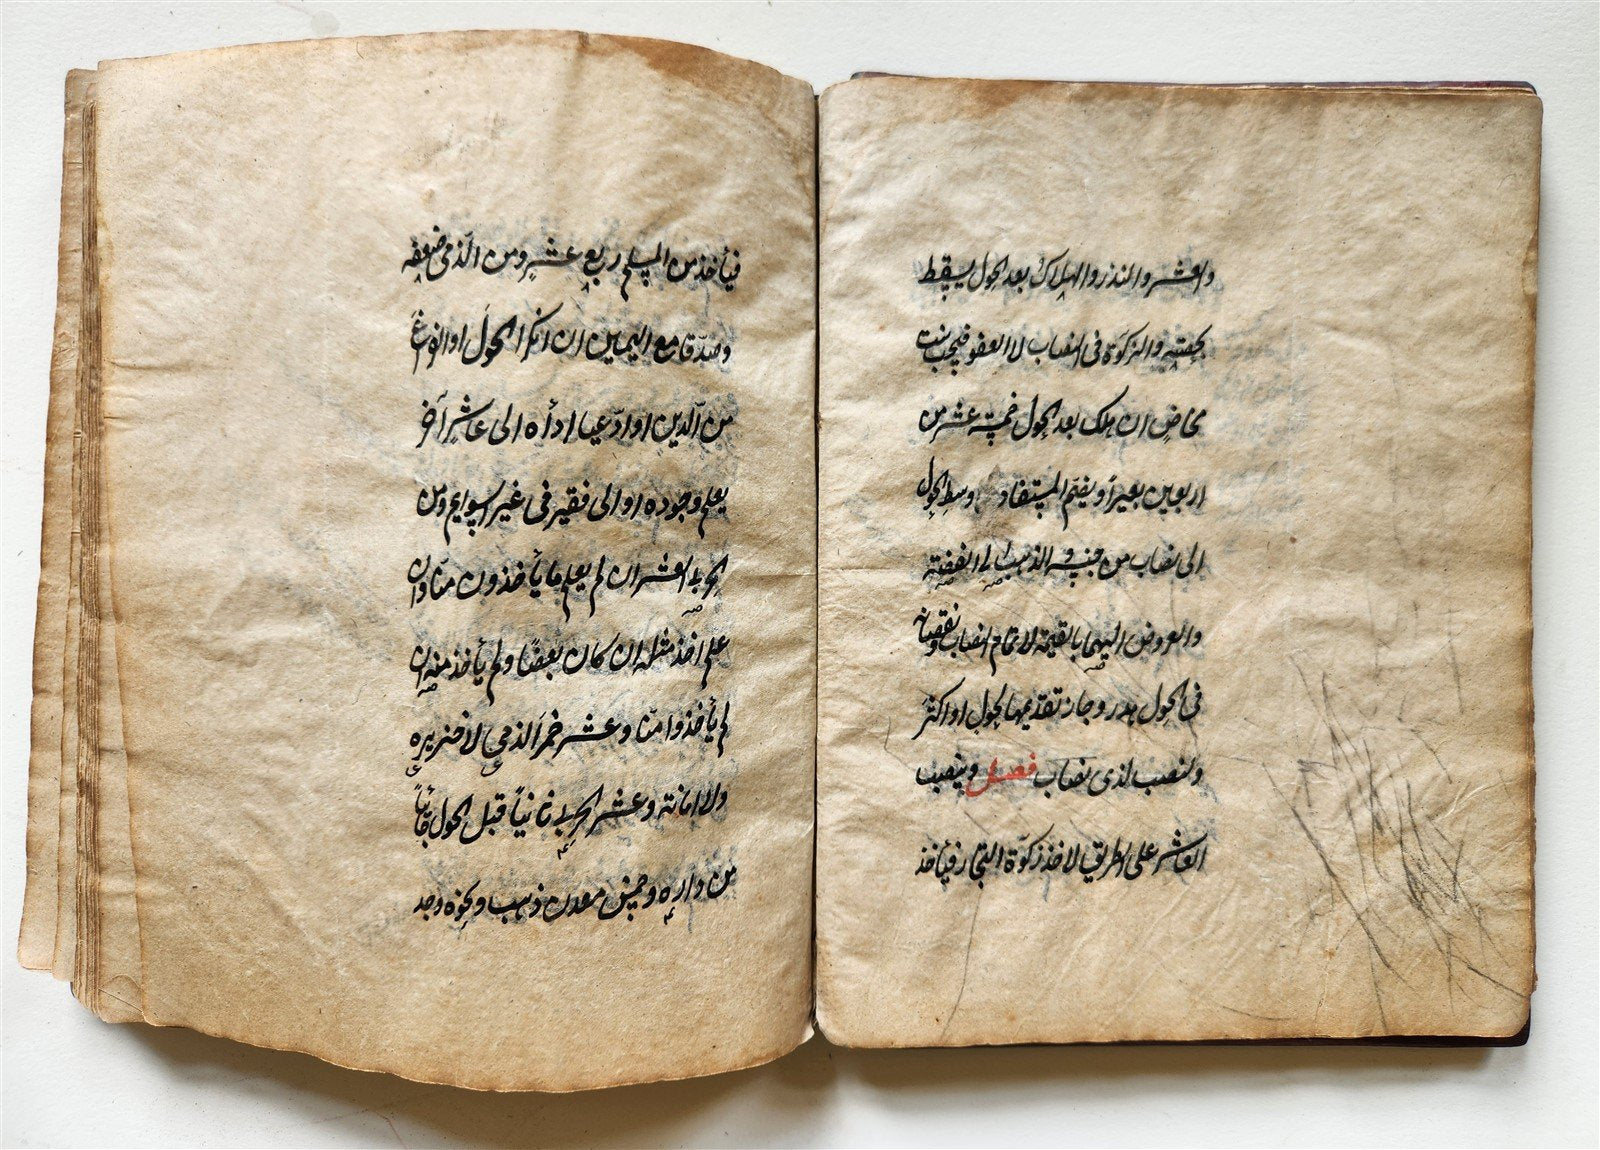 والعشر والنذر والهلاك بعد الحول يسقط
بحصته والزكوة فى النصاب لا العفو فيجب بنت
مخاض ان هلك بعد الحول خمسة عشر من
اربعين بعيرا ويضم المستفاد وسط الحول
الى نصاب من جنسه والذهب الى الفضة
والعروض اليهما بالقيمة لاتمام النصاب ونقصانه
فى الحول هدر وجاز تقديمها لحول او اكثر
ولنصب لذى نصاب فصل وينصب
العاشر على الطريق لاخذ زكوة التجار فيأخذ
فيأخذ من المسلم ربع عشر ومن الذمى ضعفه
وصدقا مع اليمين ان انكرا الحول او الفراغ
من الدين او ادّعيا اداه الى عاشر آخر
يعلم وجوده او الى فقير فى غير السوايم ومن
الحربى العشر ان لم يعلم ما يأخذون منّا وان
علم اخذ مثله ان كان بعضًا ولم يأخذ منه ان
لم يأخذوا منّا وعشر خمر الذمى لا خنزيره
ولا امانة وعشر الحربى ثانياً قبل الحول جائياً
من داره وخمس معدن ذهب ونحوه وجد